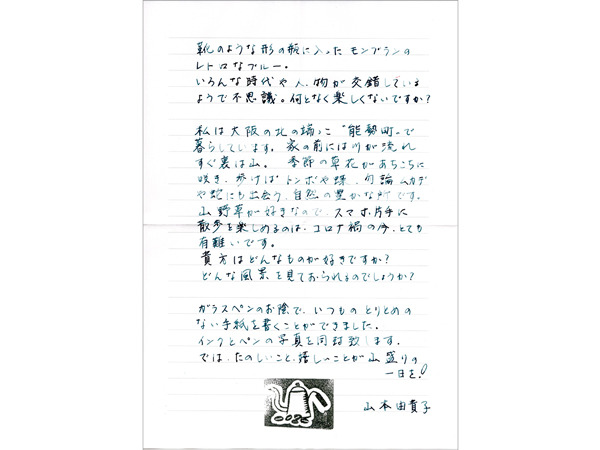 靴のような形の瓶に入ったモンブランの
レトロなブルー。
いろんな時代や人、物が交錯している
ようで不思議。何となく楽しくないですか?
私は大阪の北の端っこ"能勢町"で
暮らしています。家の前には川が流れ
すぐ裏は山。季節の草花があちこちに
咲き、歩けばトンボや蝶、勿論ムカデ
や蛇にも出会う、自然の豊かな所です。
山野草が好きなので、スマホ片手に
散歩を楽しめるのは、コロナ禍の今、とても
有難いです。
貴方はどんなものが好きですか?
どんな風景を見ておられるのでしょうか?
ガラスペンのお陰で、いつものとりとめの
ない手紙を書くことができました。
インクとペンの写真を同封致します。
では、たのしいこと、嬉しいことが山盛りの
一日を!
山本由貴子